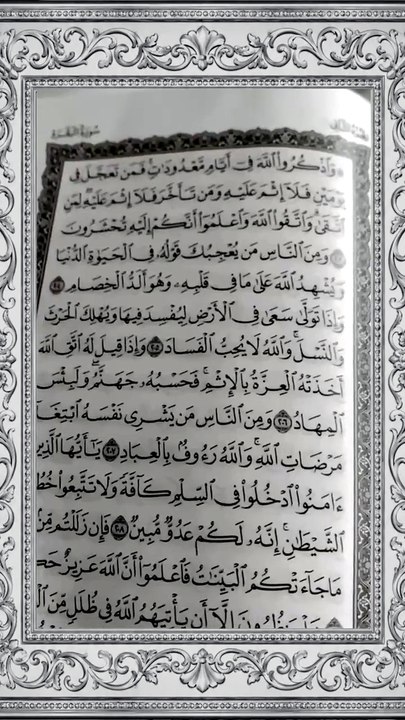 سورة البقرة
وَاذْكُرُوا اللَّهَ فِي أَيَّامٍ مَّعْدُودَاتٍ فَمَن تَعَجَّلَ فِي
يَوْمَيْنِ فَلَا إِثْمَ عَلَيْهِ وَمَن تَأَخَّرَ فَلَا إِثْمَ عَلَيْهِ لِمَنِ
اتَّقَىٰ وَاتَّقُوا اللَّهَ وَاعْلَمُوا أَنَّكُمْ إِلَيْهِ تُحْشَرُونَ
وَمِنَ النَّاسِ مَن يُعْجِبُكَ قَوْلُهُ فِي الْحَيَوٰةِ الدُّنْيَا
وَيُشْهِدُ اللَّهَ عَلَىٰ مَا فِي قَلْبِهِ وَهُوَ أَلَدُّ الْخِصَامِ
وَإِذَا تَوَلَّىٰ سَعَىٰ فِي الْأَرْضِ لِيُفْسِدَ فِيهَا وَيُهْلِكَ الْحَرْثَ
وَالنَّسْلَ وَاللَّهُ لَا يُحِبُّ الْفَسَادَ ٢٠٥ وَإِذَا قِيلَ لَهُ اتَّقِ اللَّهَ
أَخَذَتْهُ الْعِزَّةُ بِالْإِثْمِ فَحَسْبُهُ جَهَنَّمُ وَلَبِئْسَ
الْمِهَادُ ٢٠٦ وَمِنَ النَّاسِ مَن يَشْرِي نَفْسَهُ ابْتِغَا
مَرْضَاتِ اللَّهِ وَاللَّهُ رَءُوفٌ بِالْعِبَادِ ٢٠٧ يَٰٓأَيُّهَا الَّذِيـ
ءَامَنُوا ادْخُلُوا فِي السِّلْمِ كَافَّةً وَلَا تَتَّبِعُوا خُطُـ
الشَّيْطَٰنِ إِنَّهُ لَكُمْ عَدُوٌّ مُّبِينٌ ٢٠٨ فَإِن زَلَلْتُم مِّنـ
مَا جَاءَتْكُمُ الْبَيِّنَٰتُ فَاعْلَمُوا أَنَّ اللَّهَ عَزِيزٌ حَكـ
يَنظُرُونَ إِلَّا أَن يَأْتِيَهُمُ اللَّهُ فِي ظُلَلٍ مِّنَ الْـ